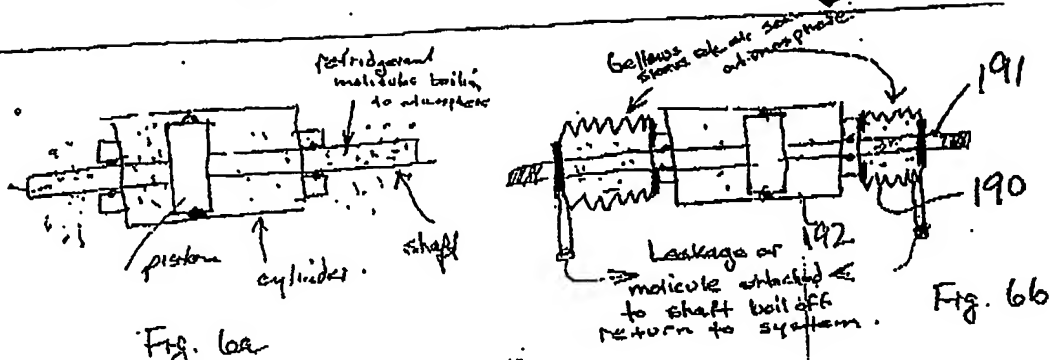 refridgerant
molicule boiling
to atmosphere
piston
cylinder.
shaft
Fig. 6a
bellows
atmosphere.
191
190
192
Leakage or
molicule attached
to shaft boil off
return to system.
Fig. 6b